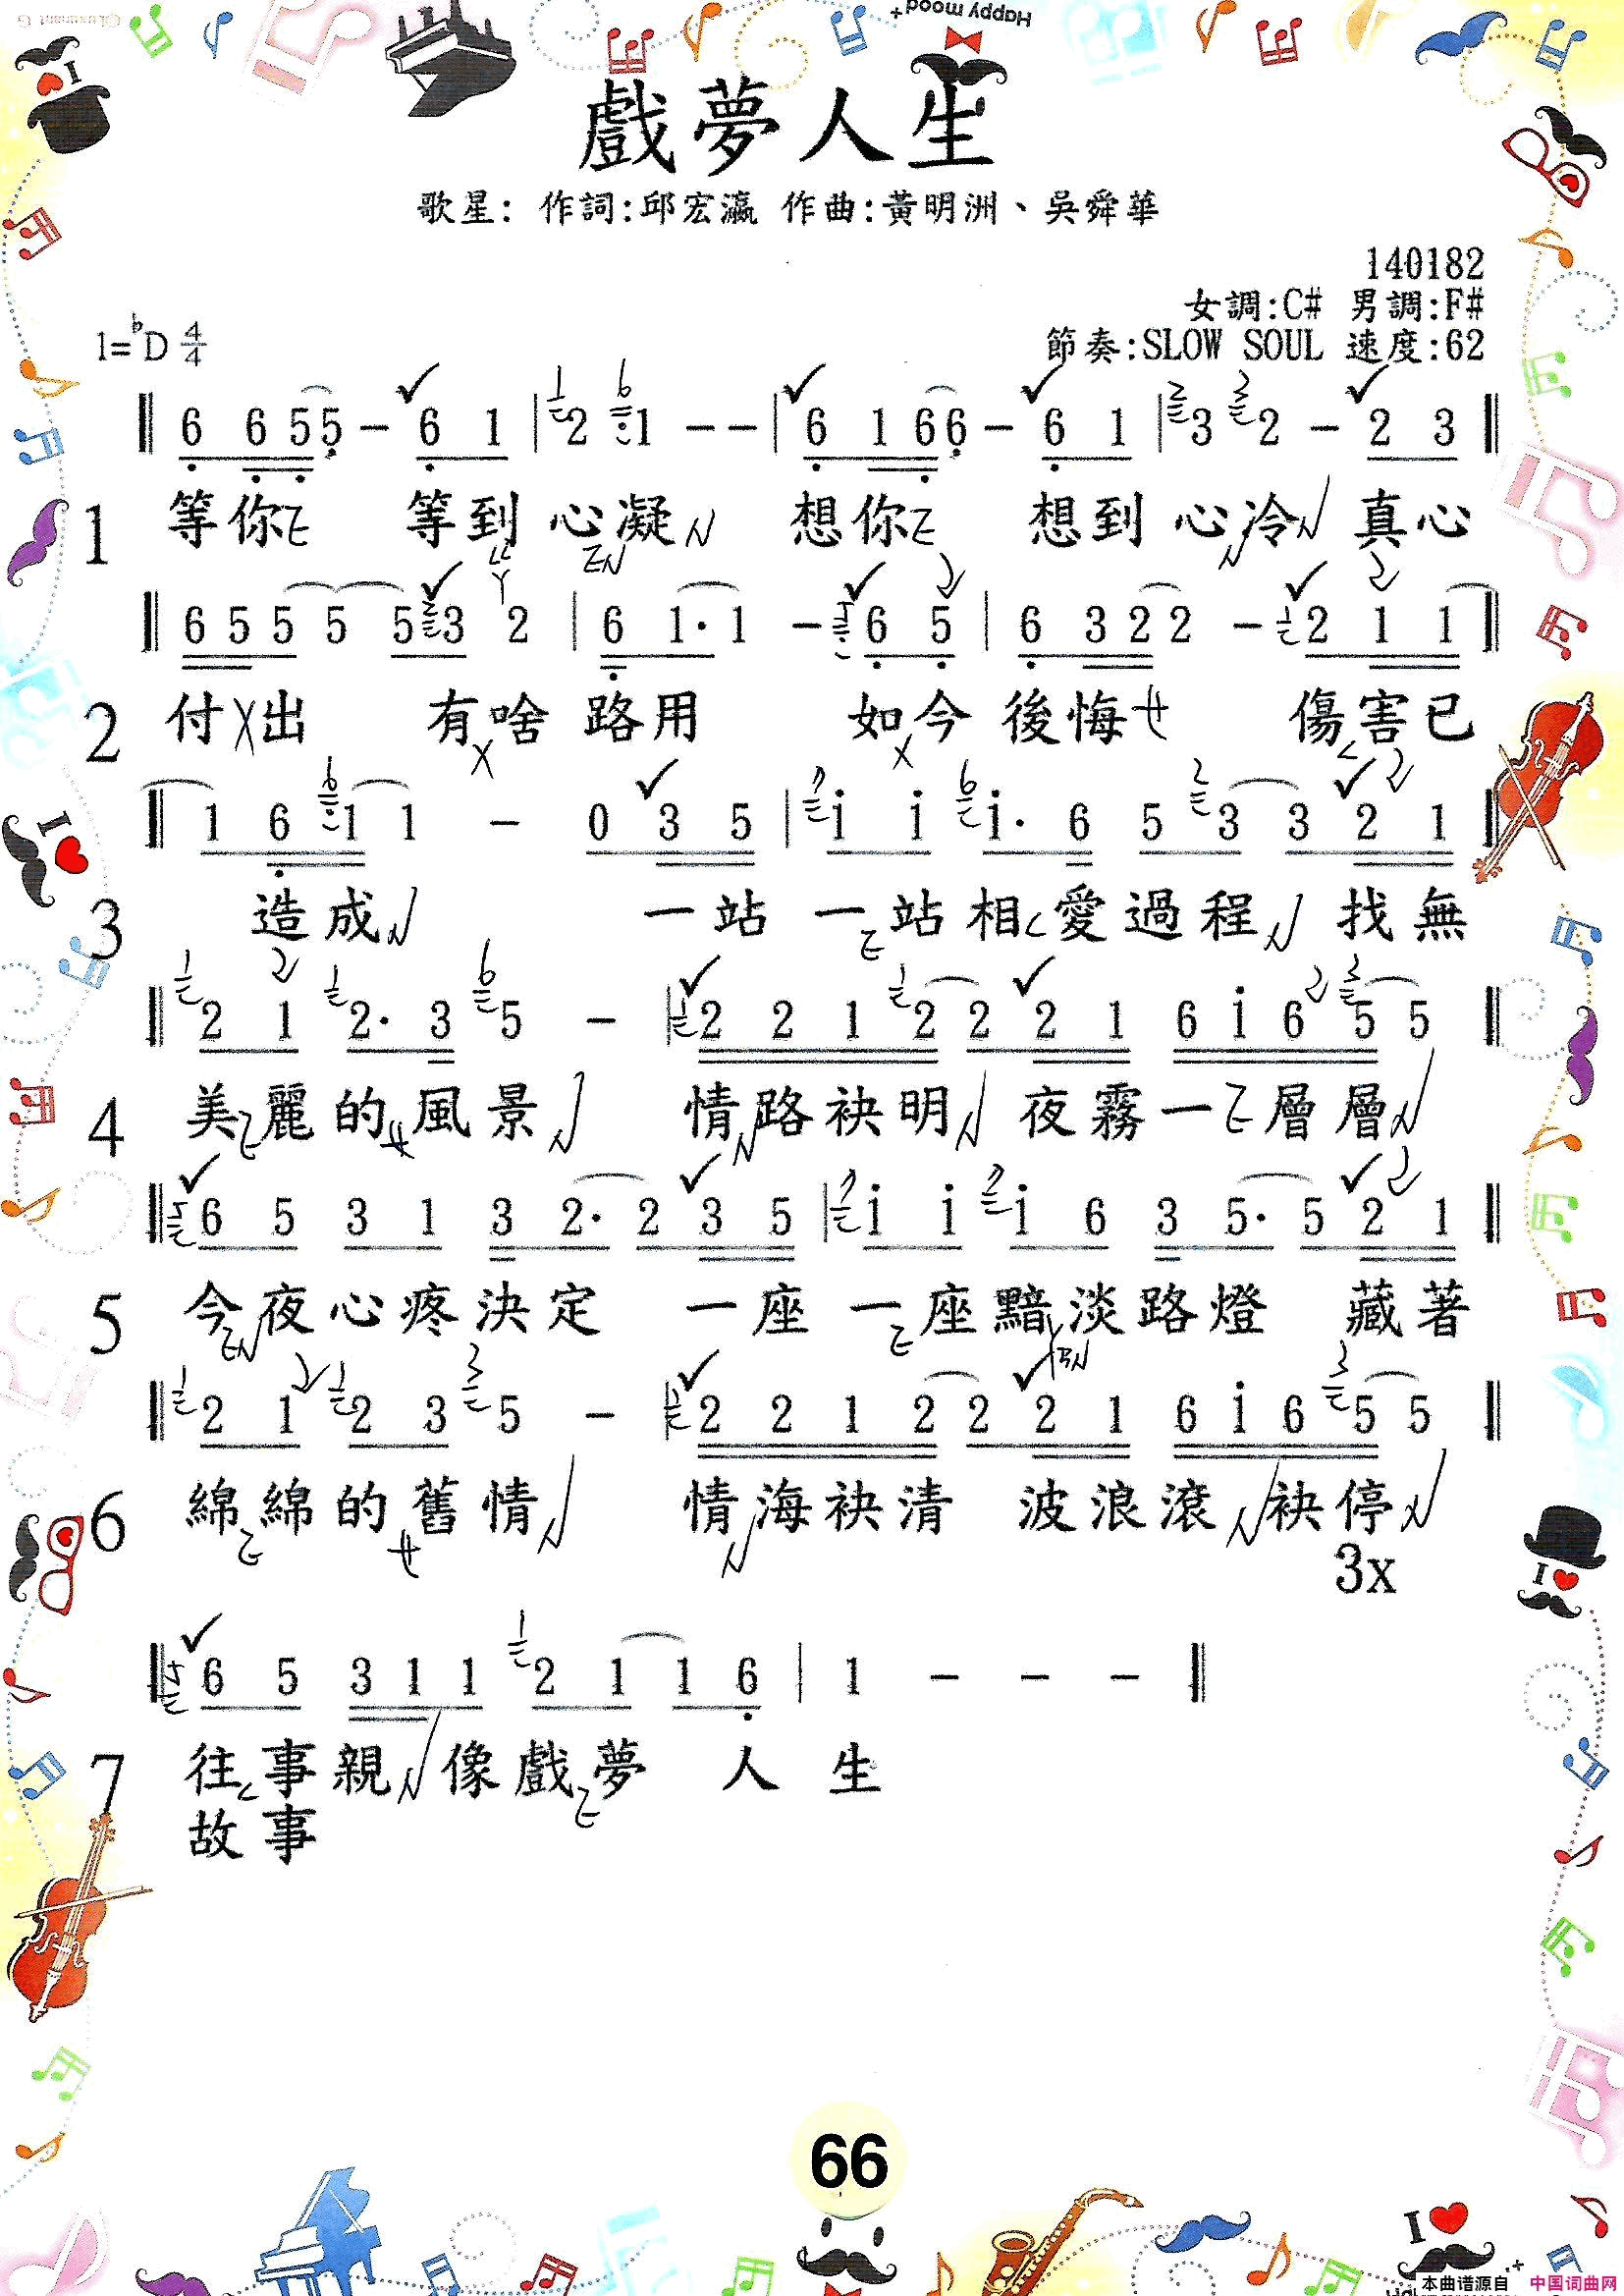 Happy mood+
I
戲夢人生
歌星: 作詞:邱宏瀛 作曲:黃明洲、吳舜華
140182
女調:C# 男調:F#
1=♭D 4/4
節奏:SLOW SOUL 速度:62
6 6 5 5 - 6 1 | 2 1 - - | 6 1 6 6 - 6 1 | 3 2 - 2 3
1 等你 等到心凝 想你 想到心冷 真心
6 5 5 5 5 3 2 | 6 1· 1 - 6 5 | 6 3 2 2 - 2 1 1
2 付出 有啥路用 如今後悔 傷害已
1 6 1 1 - 0 3 5 | i i i· 6 5 3 3 2 1
I
3 造成 一站一站相愛過程 找無
2 1 2· 3 5 - | 2 2 1 2 2 2 1 6 i 6 5 5
4 美麗的風景 情路袂明 夜霧一層層
6 5 3 1 3 2· 2 3 5 | i i i 6 3 5· 5 2 1
5 今夜心疼決定 一座一座黯淡路燈 藏著
2 1 2 3 5 - | 2 2 1 2 2 2 1 6 i 6 5 5
6 綿綿的舊情 情海袂清 波浪滾袂停
3x
I
6 5 3 1 1 2 1 1 6 | 1 - - -
7 往事親像戲夢 人生
故事
66
I
本曲谱源自 中国词曲网